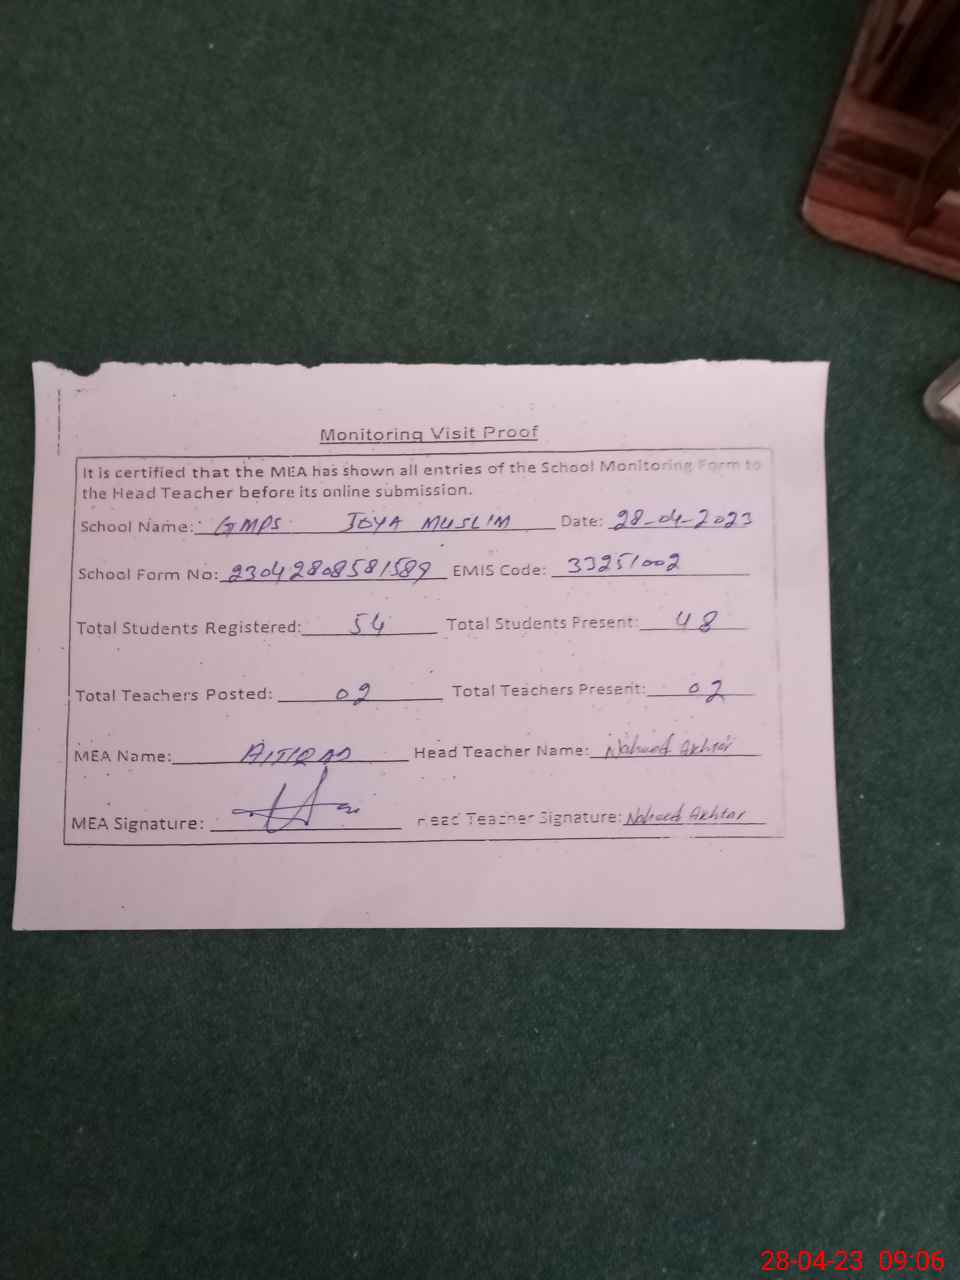 Monitoring Visit Proof
It is certified that the MEA has shown all entries of the School Monitoring Form to
the Head Teacher before its online submission.
School Name: GMPS JOYA MUSLIM Date: 28-04-2023
School Form No: 23042808581589 EMIS Code: 33251002
Total Students Registered: 54 Total Students Present: 48
Total Teachers Posted: 02 Total Teachers Present: 02
MEA Name: Head Teacher Name: Naheed Akhtar
MEA Signature: Head Teacher Signature: Naheed Akhtar
28-04-23 09:06